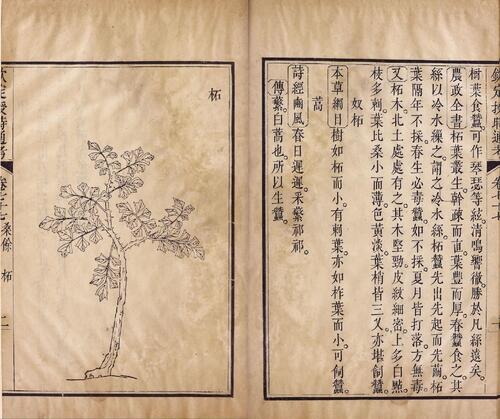 欽定授時通考 卷七十七
樹葉食蠶。可作琴瑟等絃。清鳴響徹。勝於凡絲遠矣。
農政全書柘葉叢生。幹疎而直。葉豐而厚。春蠶食之。其
絲以冷水繰之。謂之冷水絲。柘蠶先出先起而先繭。柘
葉隔年不採。春生必毒蠶。如不採。夏月皆打落。方無毒。
又柘木北土處處有之。其木堅勁。皮紋細密。上多白㸃。
枝多刺。葉比桑小而薄。色黃淡。葉梢皆三叉。亦堪飼蠶。
奴柘
本草綱目樹如柘而小。有刺。葉亦如柞葉而小。可飼蠶。
蒿
詩經豳風春日遲遲。采蘩祁祁。
傳蘩。白蒿也。所以生蠶。
柘
欽定授時通考 卷七十七 桑餘 柘 二